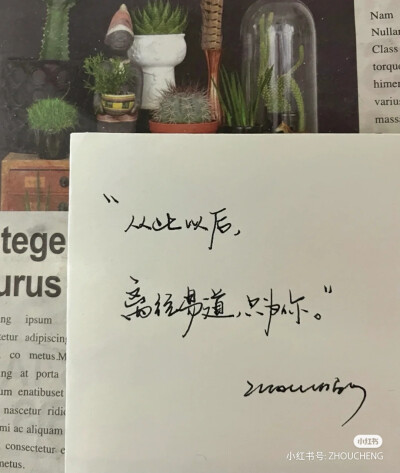 Nam
Nullam
Class
torque
himen
varius
massa
"从此以后，
离经易道，只为你。"
tege
urus
ng ipsum
tetur adipiscing
co metus.M
ng at porta
um enatibuset
nascetur ridic
mi ac aliquam
consectetur e
metus.
小红书
小红书号: ZHOUCHENG